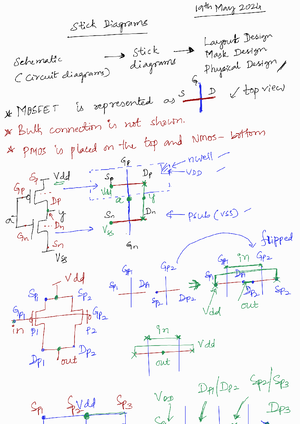 Stick Diagrams
19th May 2024
Schematic
(Circuit diagrams)
Stick
diagrams
Layout Design
Mask Design
Physical Design
* MOSFET is represented as
S G D
top view
* Bulk connection is not shown.
* PMOS is placed on the top and NMOS - bottom
Sp Vdd
Gp
Dp
y
Dn
Gn
Sn
Vss
Gp
Sp Dp
nwell
VDD
Dn
Vss
Gn
psub (VSS)
flipped
Vdd
Sp1 Sp2
in
Gp1 Gp2
Dp1 Dp2
out
Gp1 Gp2
Sp1 Dp1
Sp2 Dp2
Gp1 Gp2
in
Vdd
out
in
Vdd
out
Sp1 Vdd Sp3
VDD
Dp1/Dp2 Sp2/Sp3